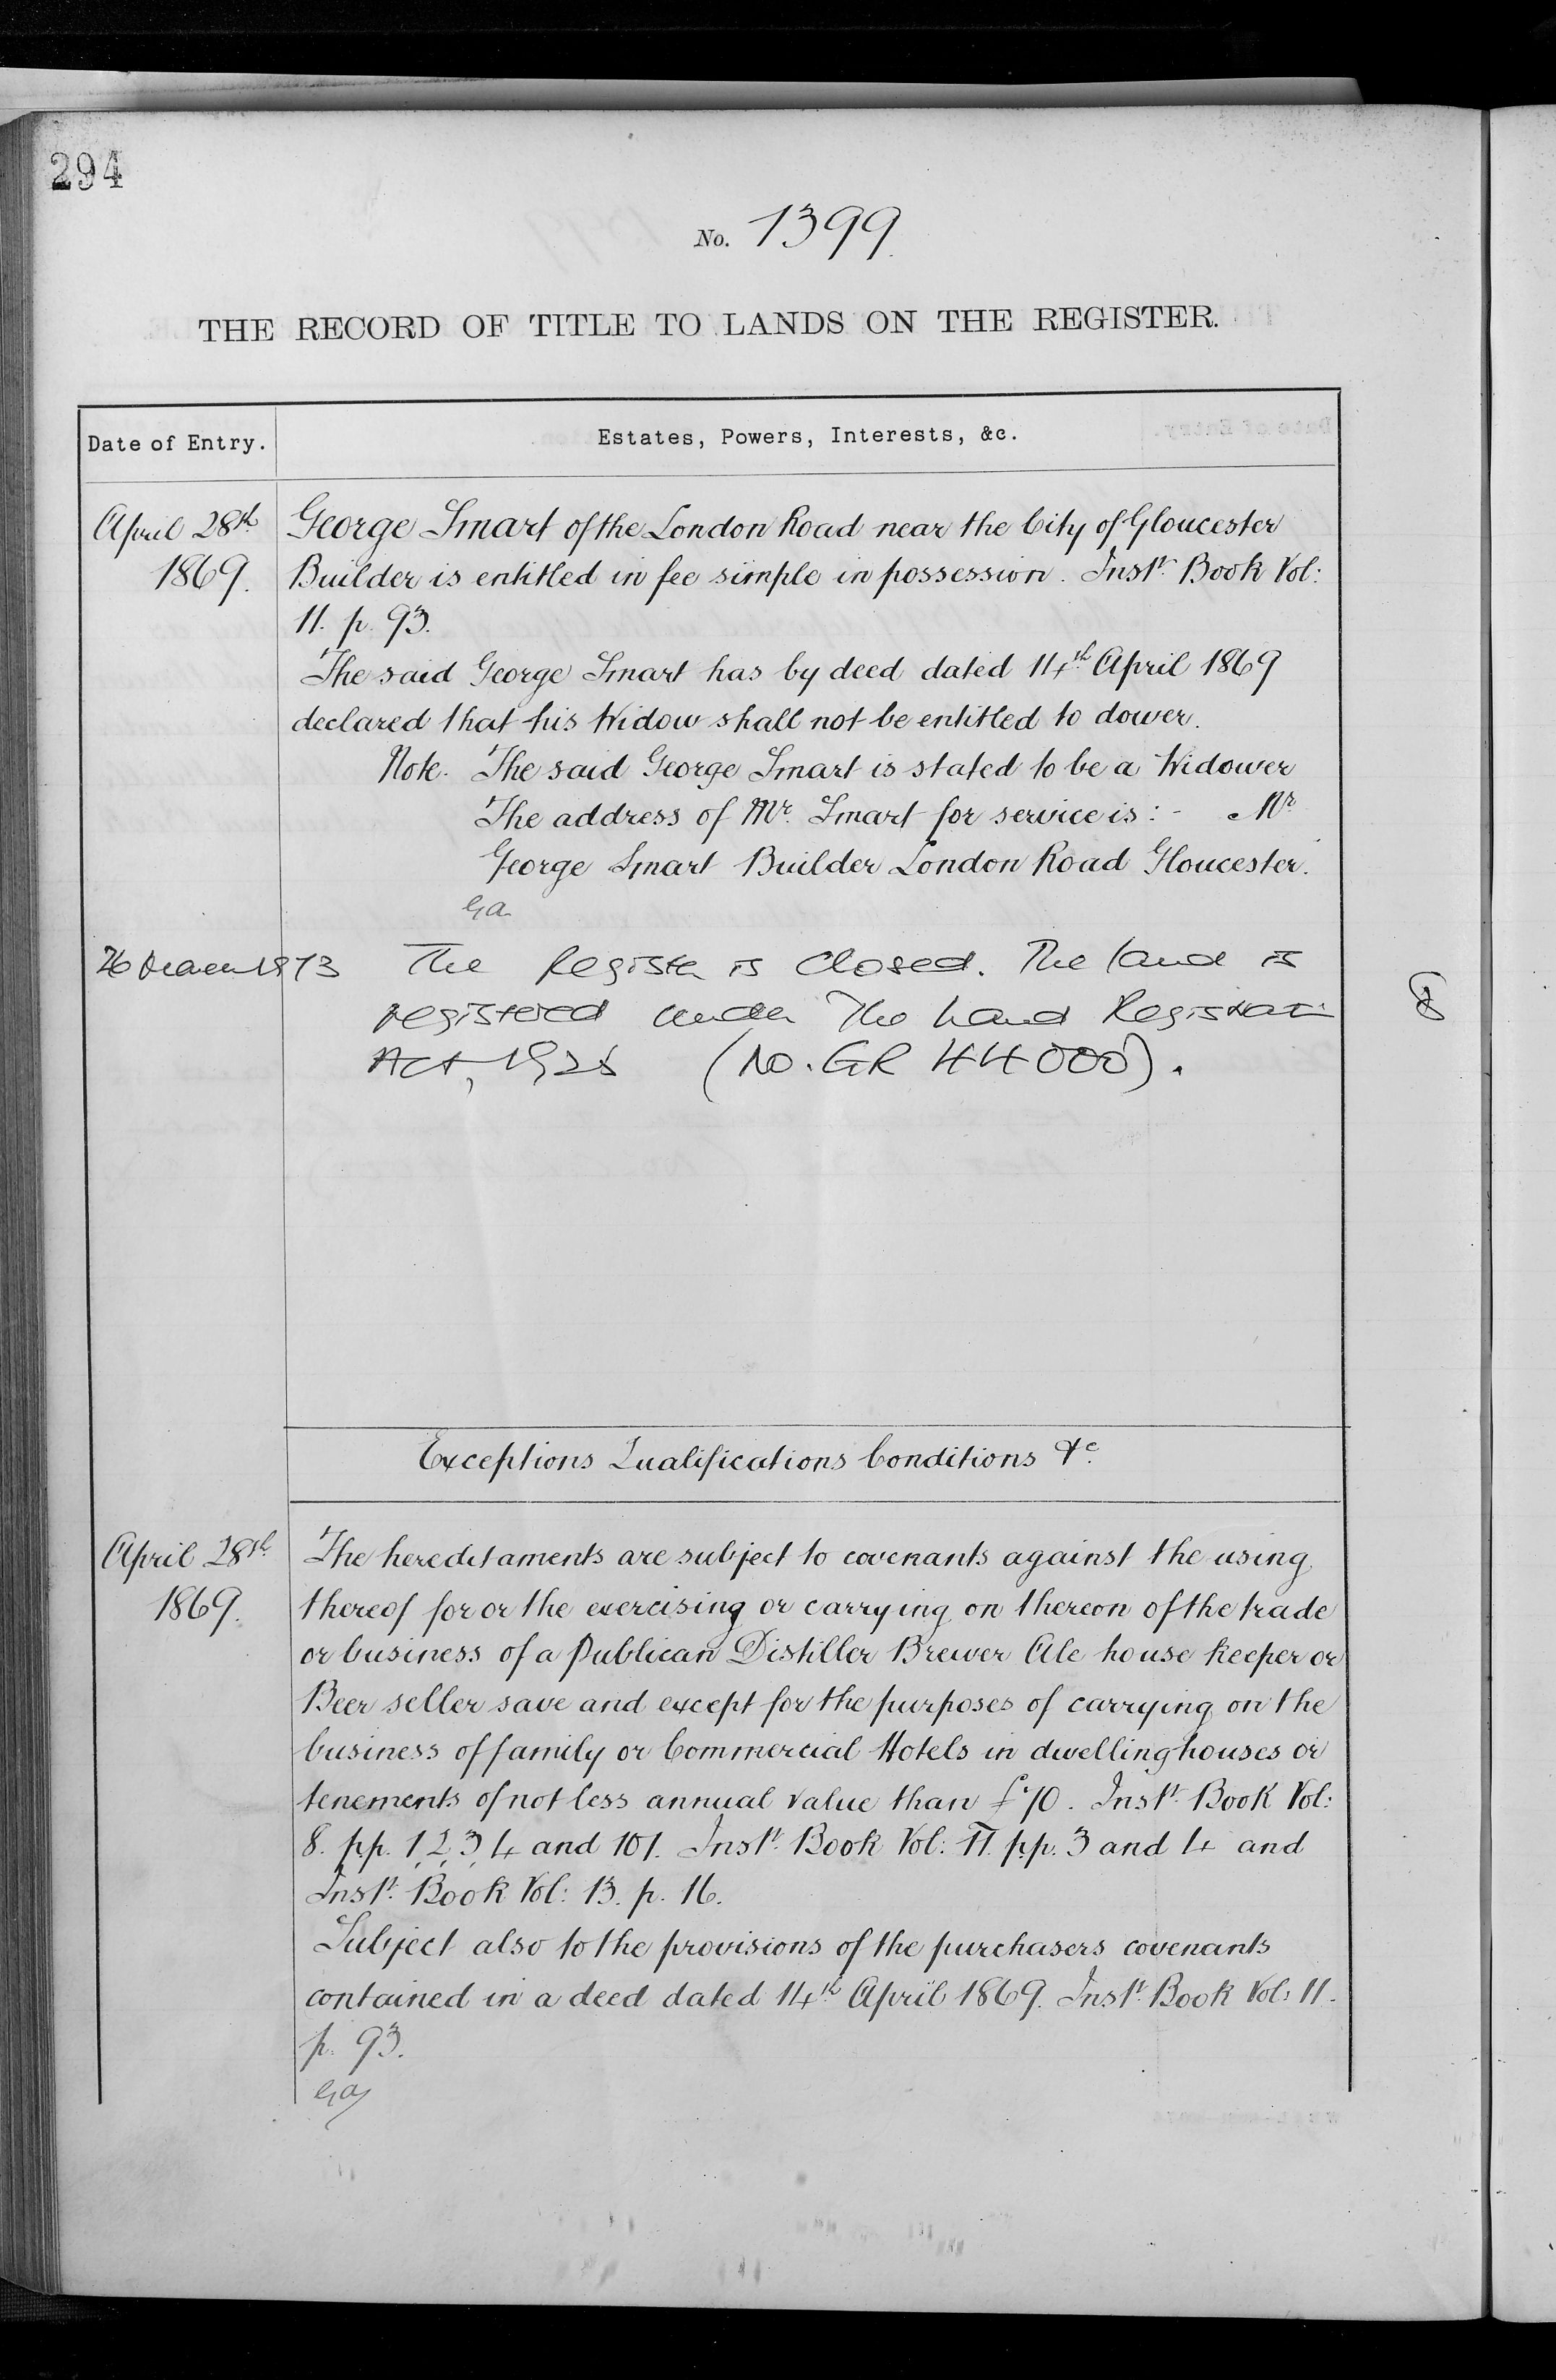 294
No. 1399.
THE RECORD OF TITLE TO LANDS ON THE REGISTER.
Date of Entry.
Estates, Powers, Interests, &c.
April 28th
1869.
George Smart of the London Road near the City of Gloucester
Builder is entitled in fee simple in possession. Instt. Book Vol:
11. p. 93.
The said George Smart has by deed dated 14th April 1869
declared that his Widow shall not be entitled to dower.
Note. The said George Smart is stated to be a Widower
The address of Mr. Smart for service is: - Mr
George Smart Builder London Road Gloucester.
Ga
26 Decem 1973
The Register is Closed. The land is
registered under The Land Registration
Act, 1925 (No. GR 44000).
Exceptions Qualifications Conditions &c.
April 28th
1869.
The hereditaments are subject to covenants against the using
thereof for or the exercising or carrying on thereon of the trade
or business of a Publican Distiller Brewer Ale house keeper or
Beer seller save and except for the purposes of carrying on the
business of family or Commercial Hotels in dwellinghouses or
tenements of not less annual value than £70. Instt. Book Vol:
8. pp. 1, 2, 3, 4 and 101. Instt. Book Vol: 11. pp. 3 and 4 and
Instt. Book Vol: 13. p. 16.
Subject also to the provisions of the purchasers covenants
contained in a deed dated 14th April 1869. Instt. Book Vol: 11.
p. 93.
Ga